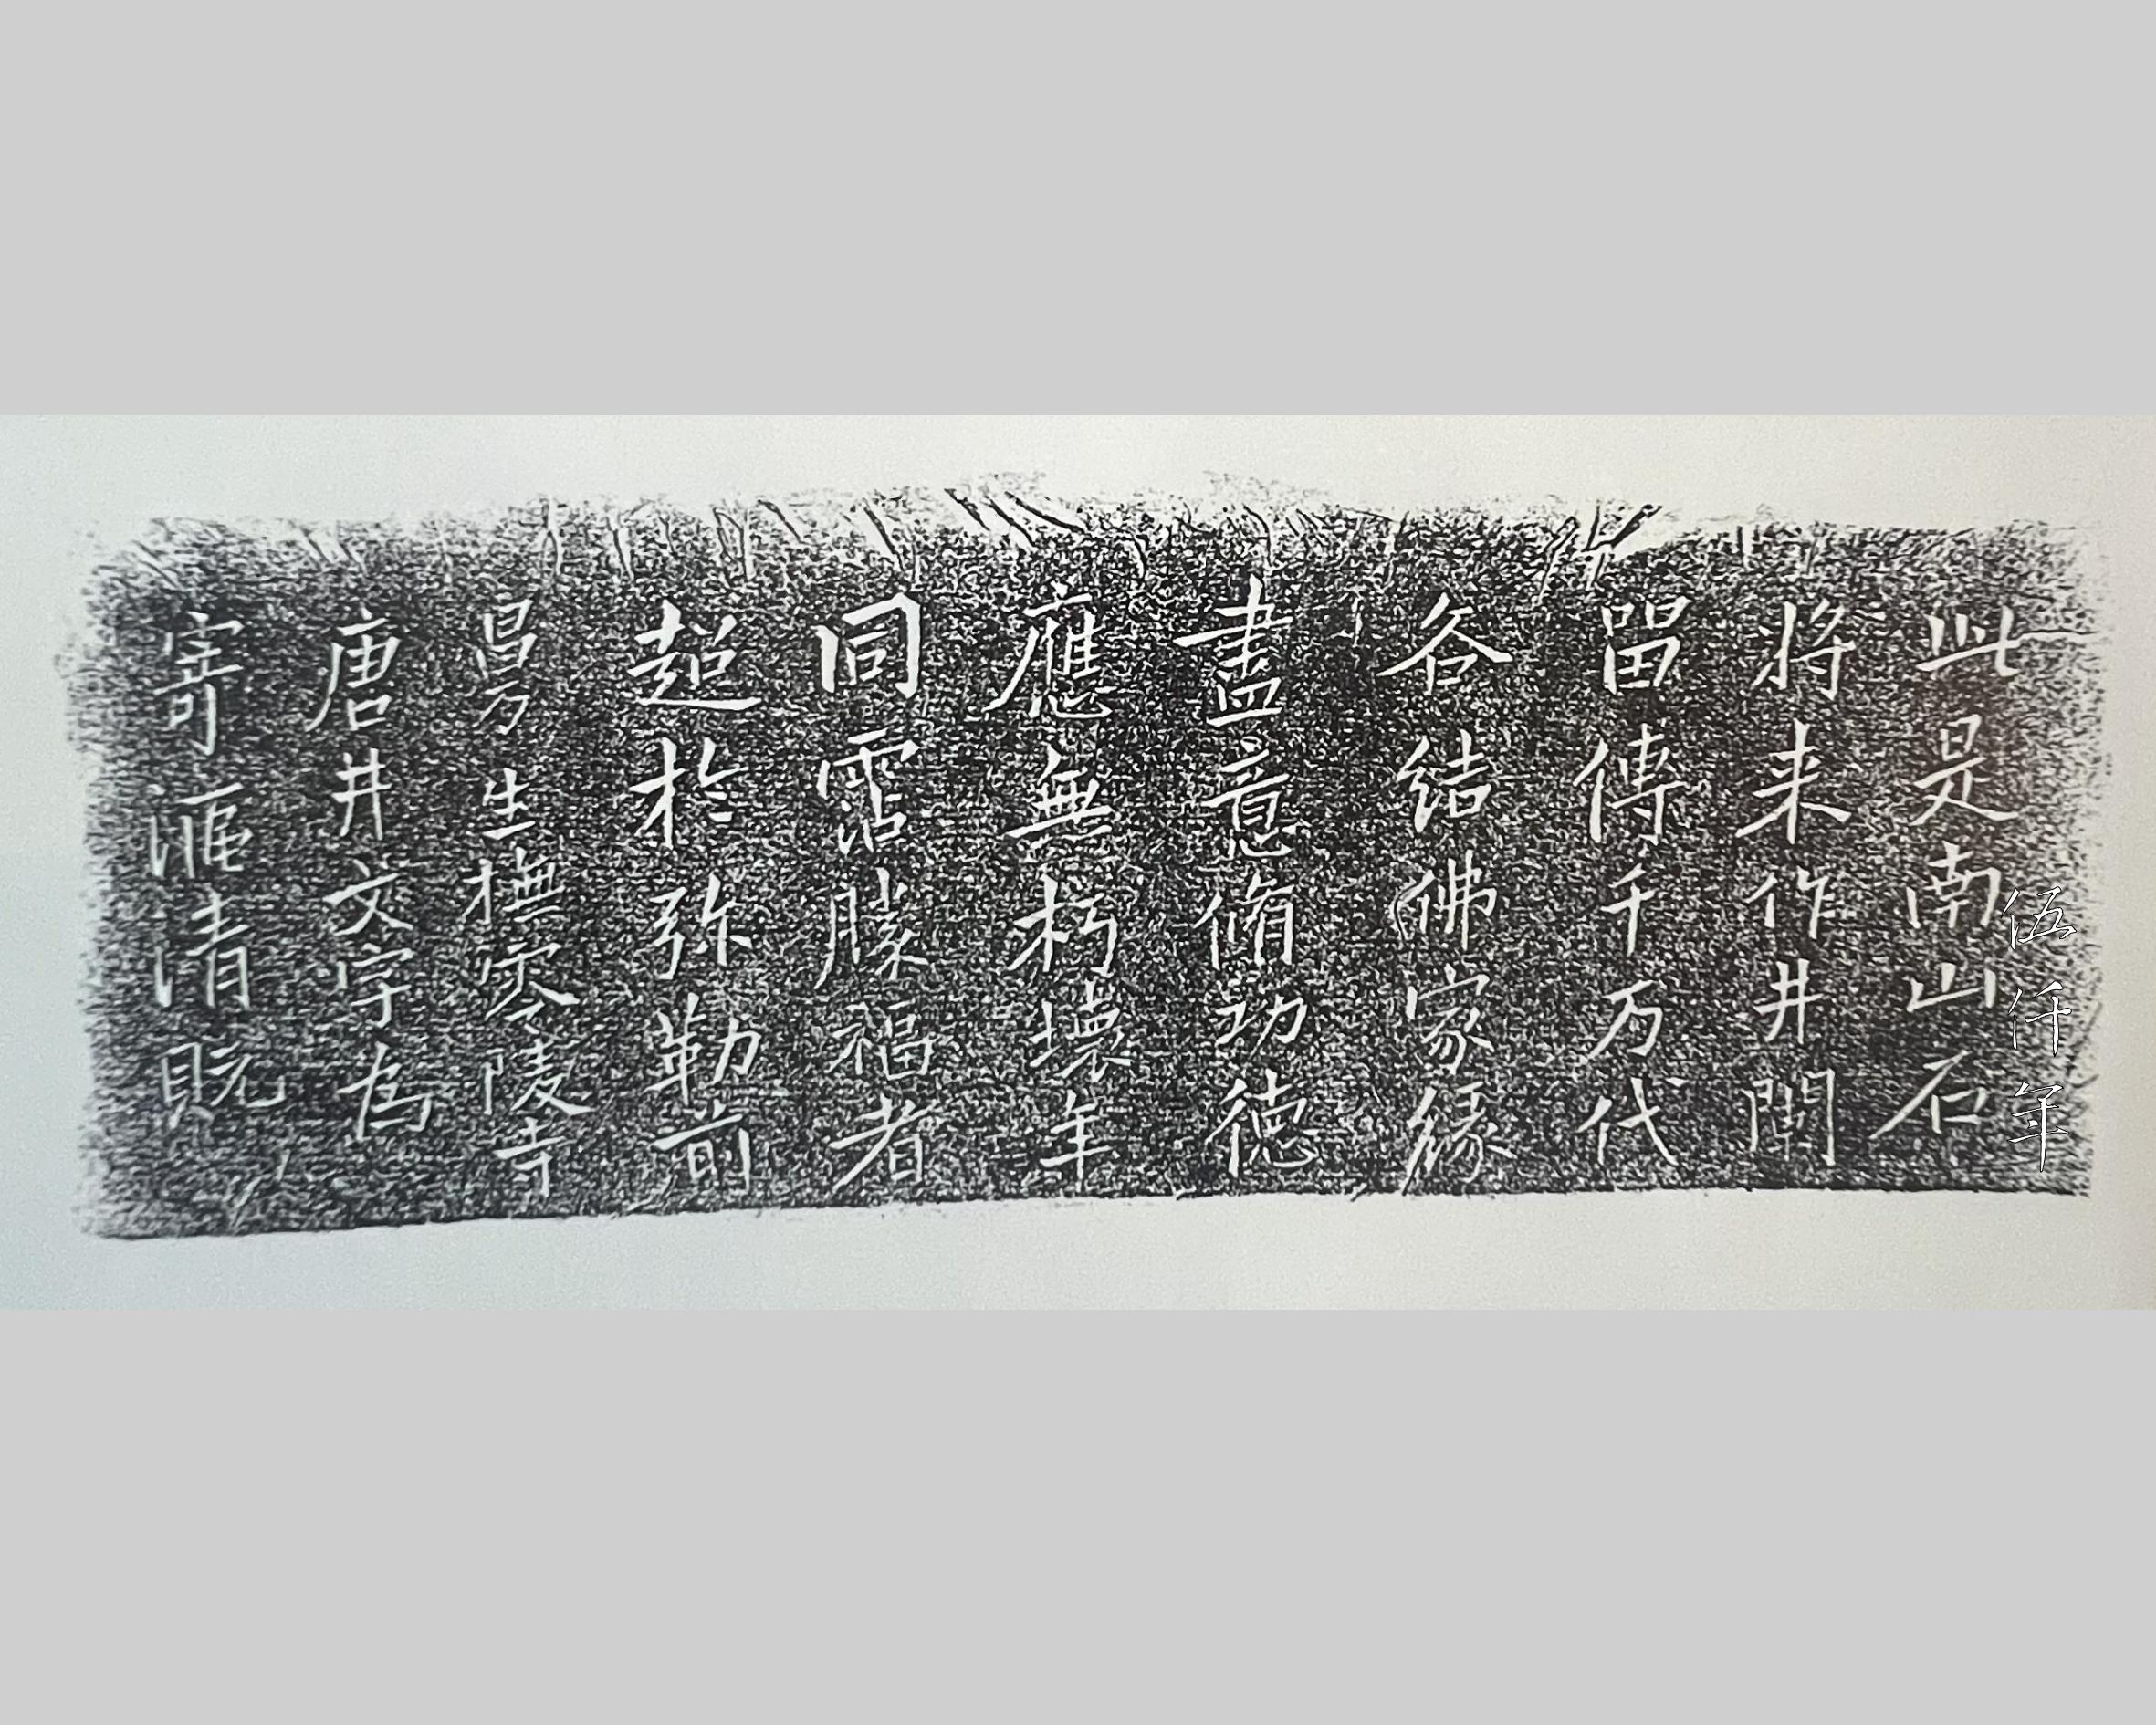 此是南山石
將来作井闌
留傳千万代
各結佛家緣
盡意脩功德
應無朽壞年
同霑勝福者
超於弥勒前
昌生橅零陵寺
唐井文字為
寄漚清貺
伍仟年